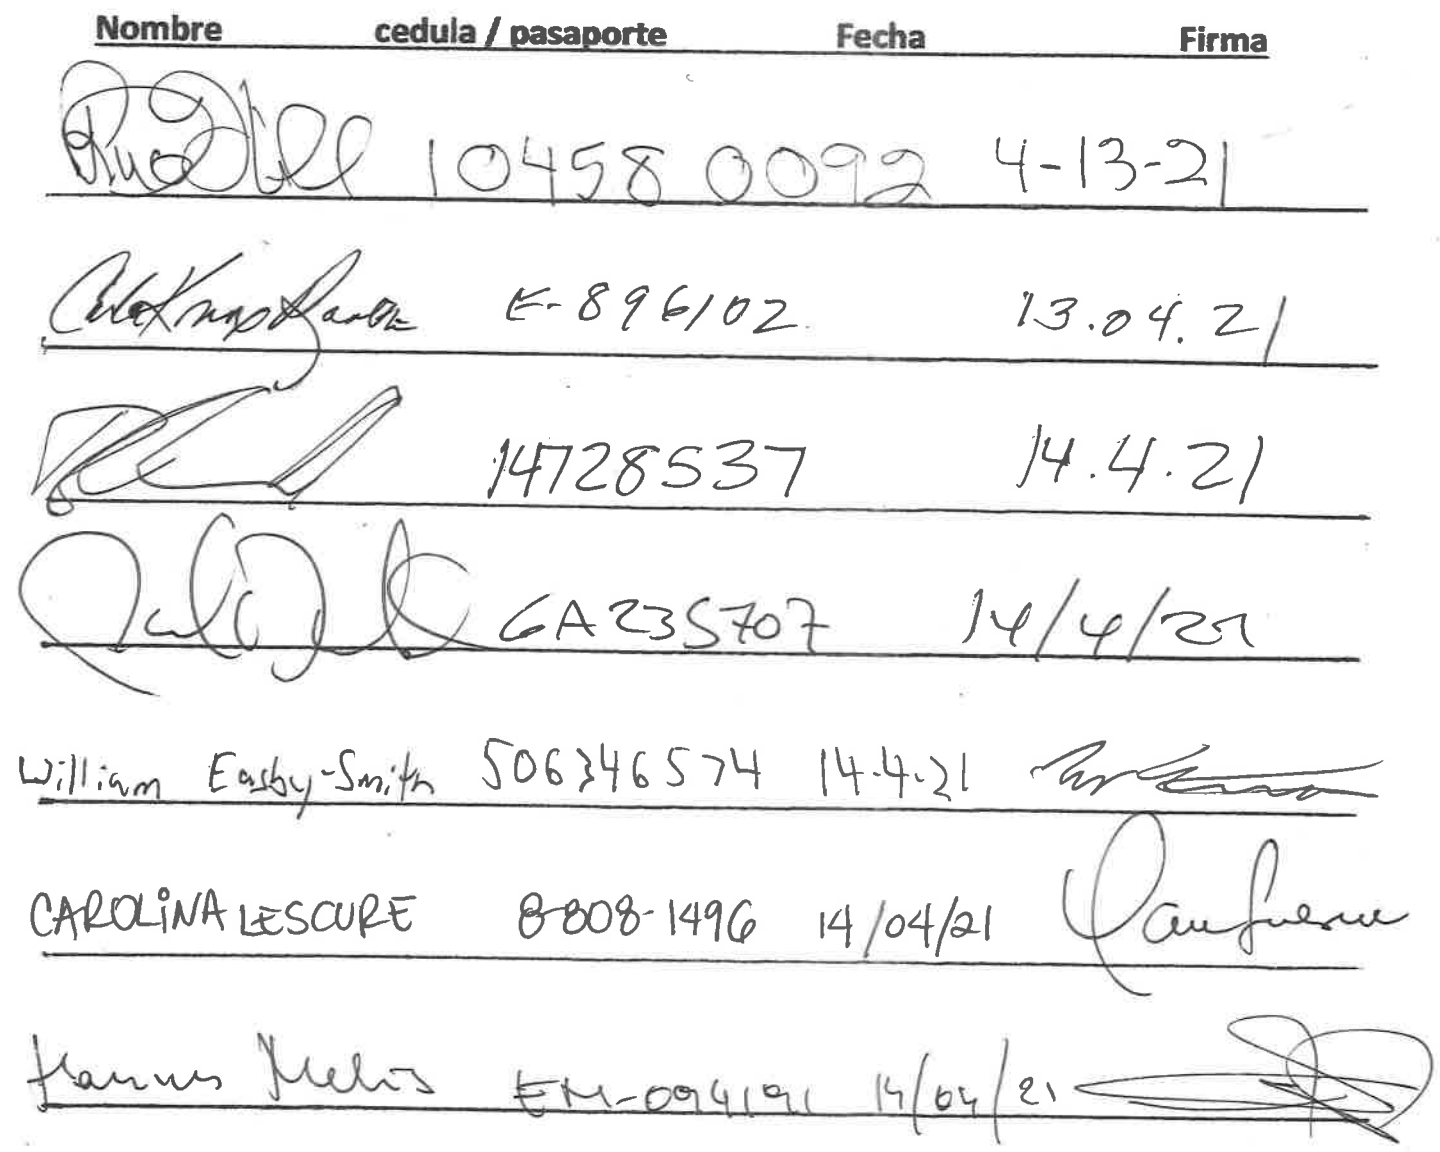 Nombre cedula / pasaporte Fecha Firma
10458 0092 4-13-21
E-896102 13.04.21
14728537 14.4.21
GA235707 14/4/21
William Easby-Smith 506346574 14.4.21
CAROLINA LESCURE 8-808-1496 14/04/21
Hannes Mehis EM-094191 14/04/21